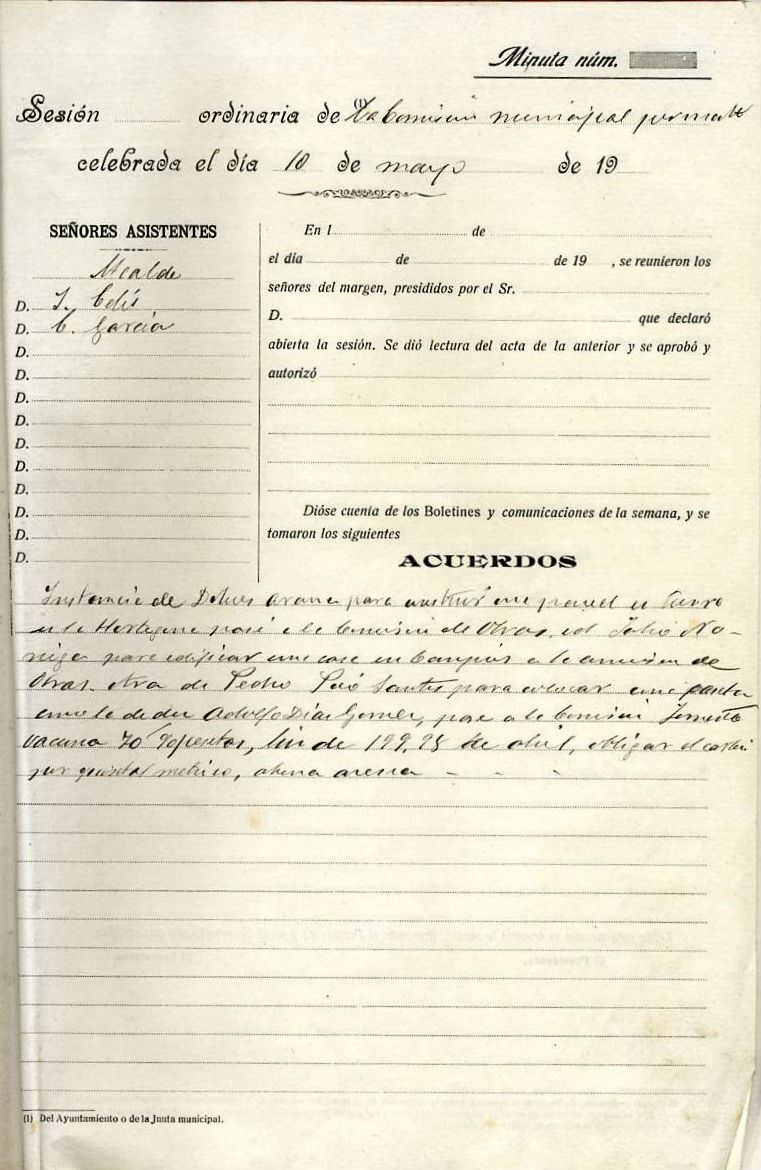 Minuta núm.
Sesión ordinaria de (1) La Comisión municipal permate
celebrada el día 10 de mayo de 19
SEÑORES ASISTENTES
Alcalde
D. J. Celis
D. C. García
D.
D.
D.
D.
D.
D.
D.
D.
D.
D.
En l de
el día de de 19 , se reunieron los
señores del margen, presididos por el Sr.
D. que declaró
abierta la sesión. Se dió lectura del acta de la anterior y se aprobó y
autorizó
Dióse cuenta de los Boletines y comunicaciones de la semana, y se
tomaron los siguientes
ACUERDOS
Instancia de Dolores Arana para construir una pared
pase a la Comisión de Obras, id Julio No-
riega para edificar una casa en a la comisión de
Obras. Otra de Pedro Santos para colocar una
como la de don Adolfo Díaz pase a la Comisión
vacuna 70 pesetas, de 199,25 de abril, obligar al
por quintal métrico, arena
(1) Del Ayuntamiento o de la Junta municipal.